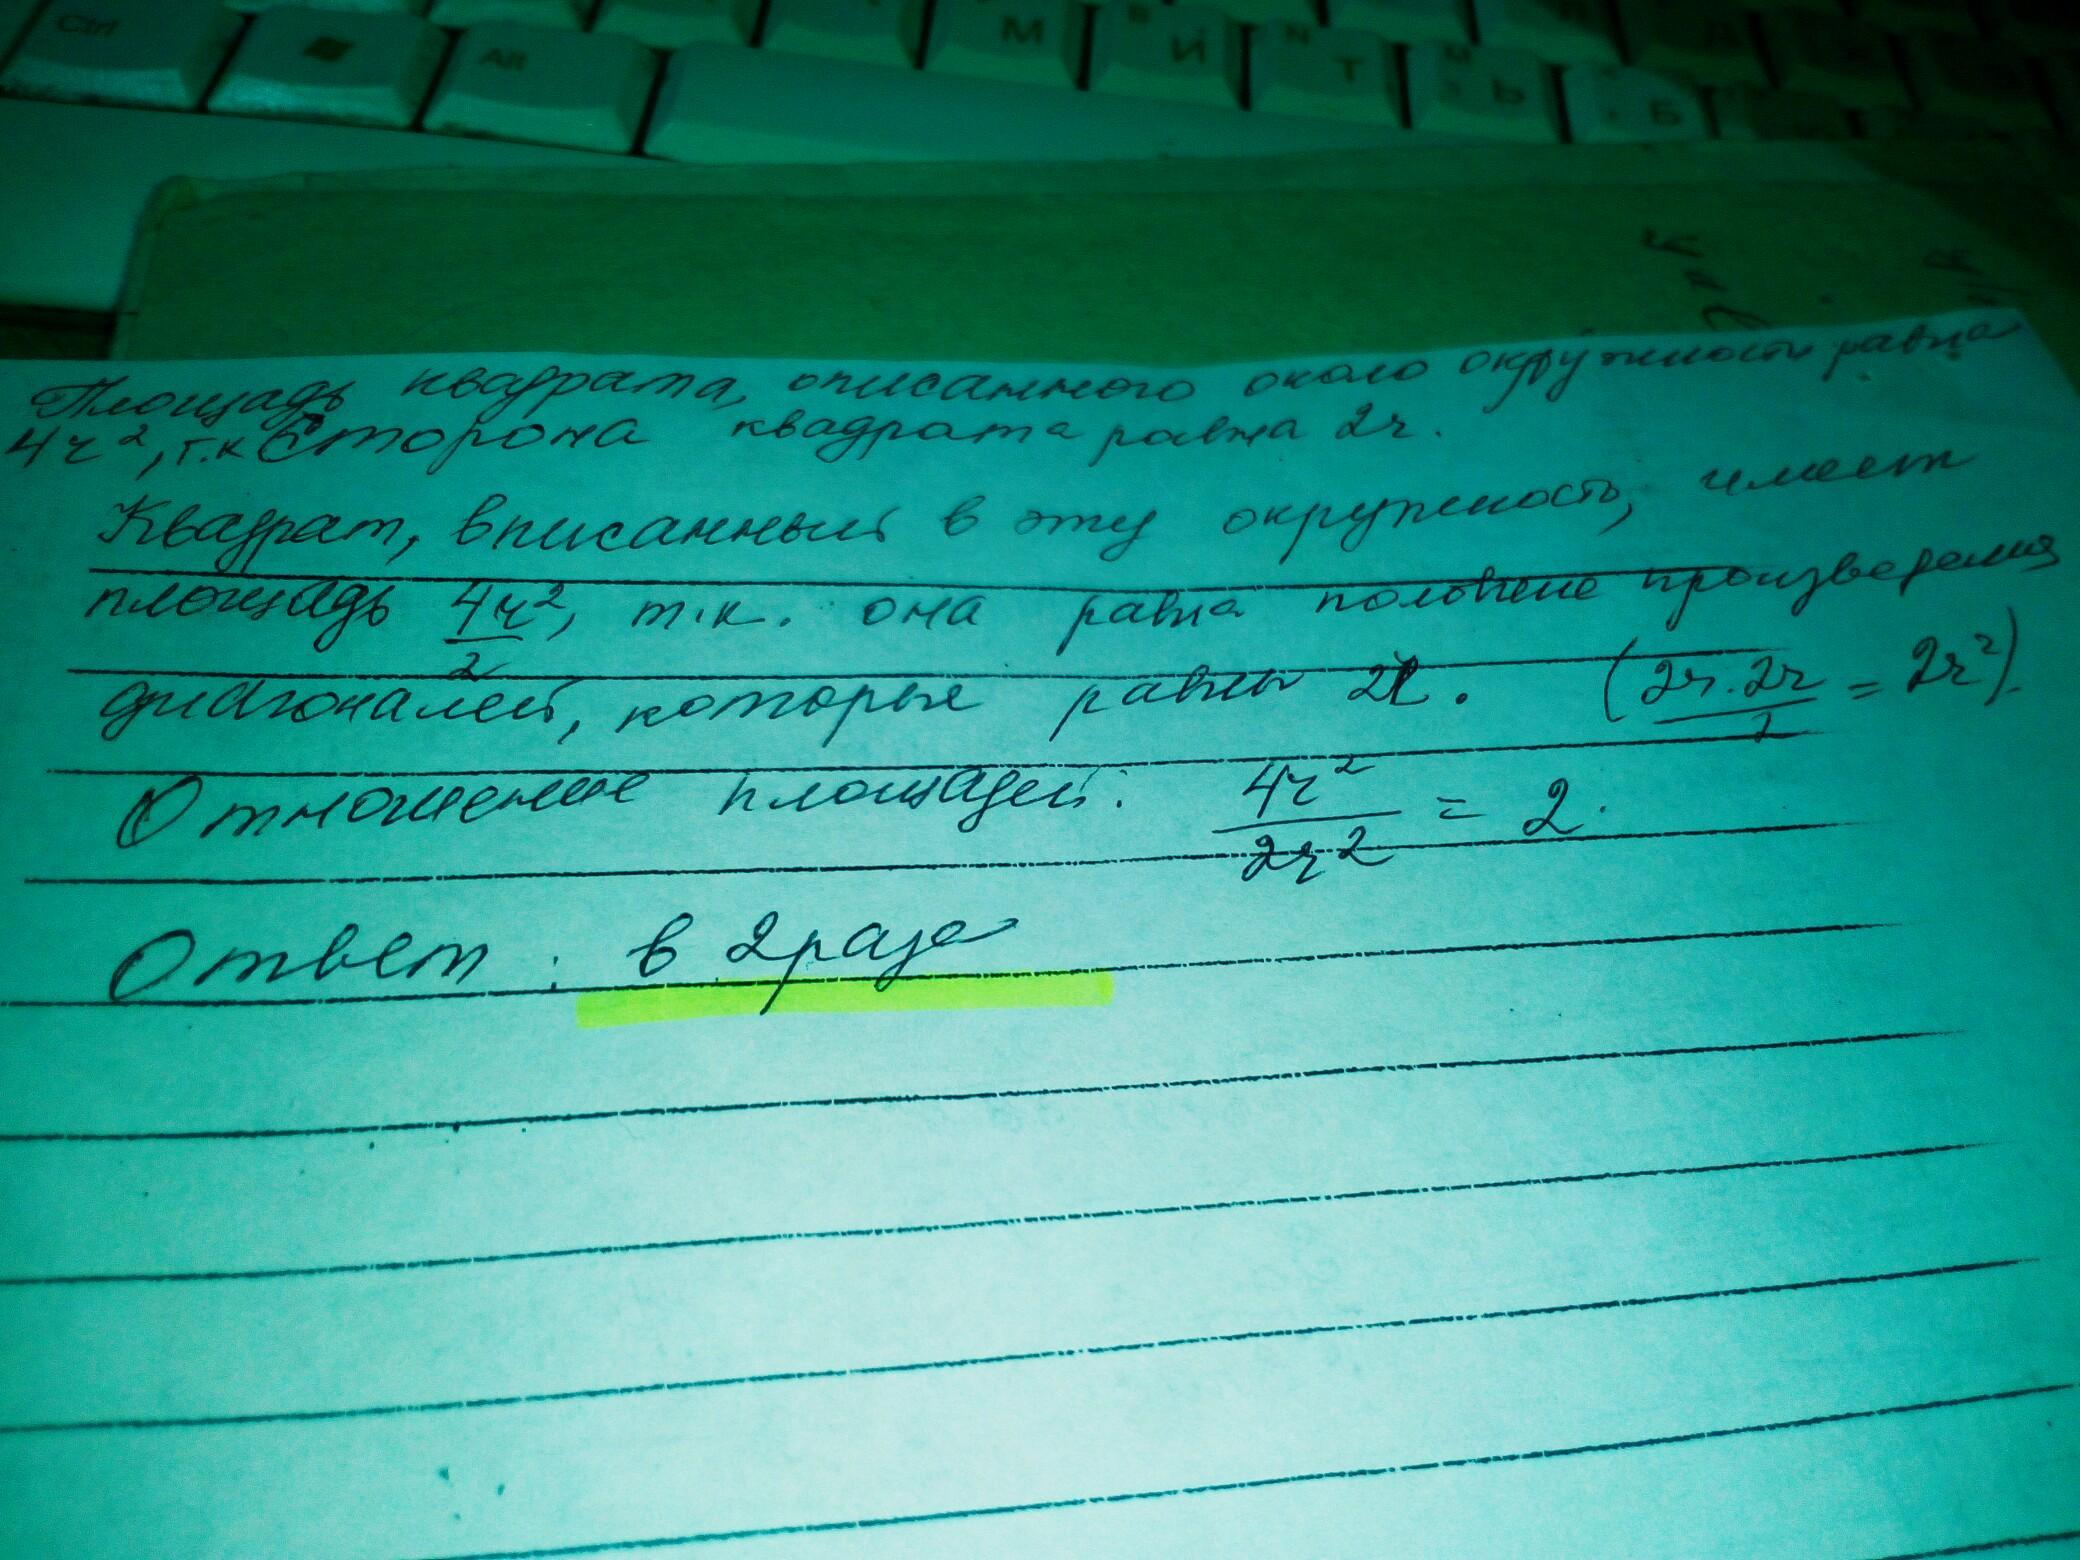 Ctrl
Alt
М
И
Т
Ь
Б
Площадь квадрата, описанного около окружности равна
4r², т.к Сторона квадрата равна 2r.
Квадрат, вписанный в эту окружность, имеет
площадь 4r²/2, т.к. она равна половине произведения
диагоналей, которые равны 2r. (2r·2r/2 = 2r²).
Отношение площадей: 4r²/2r² = 2.
Ответ: в 2 раза